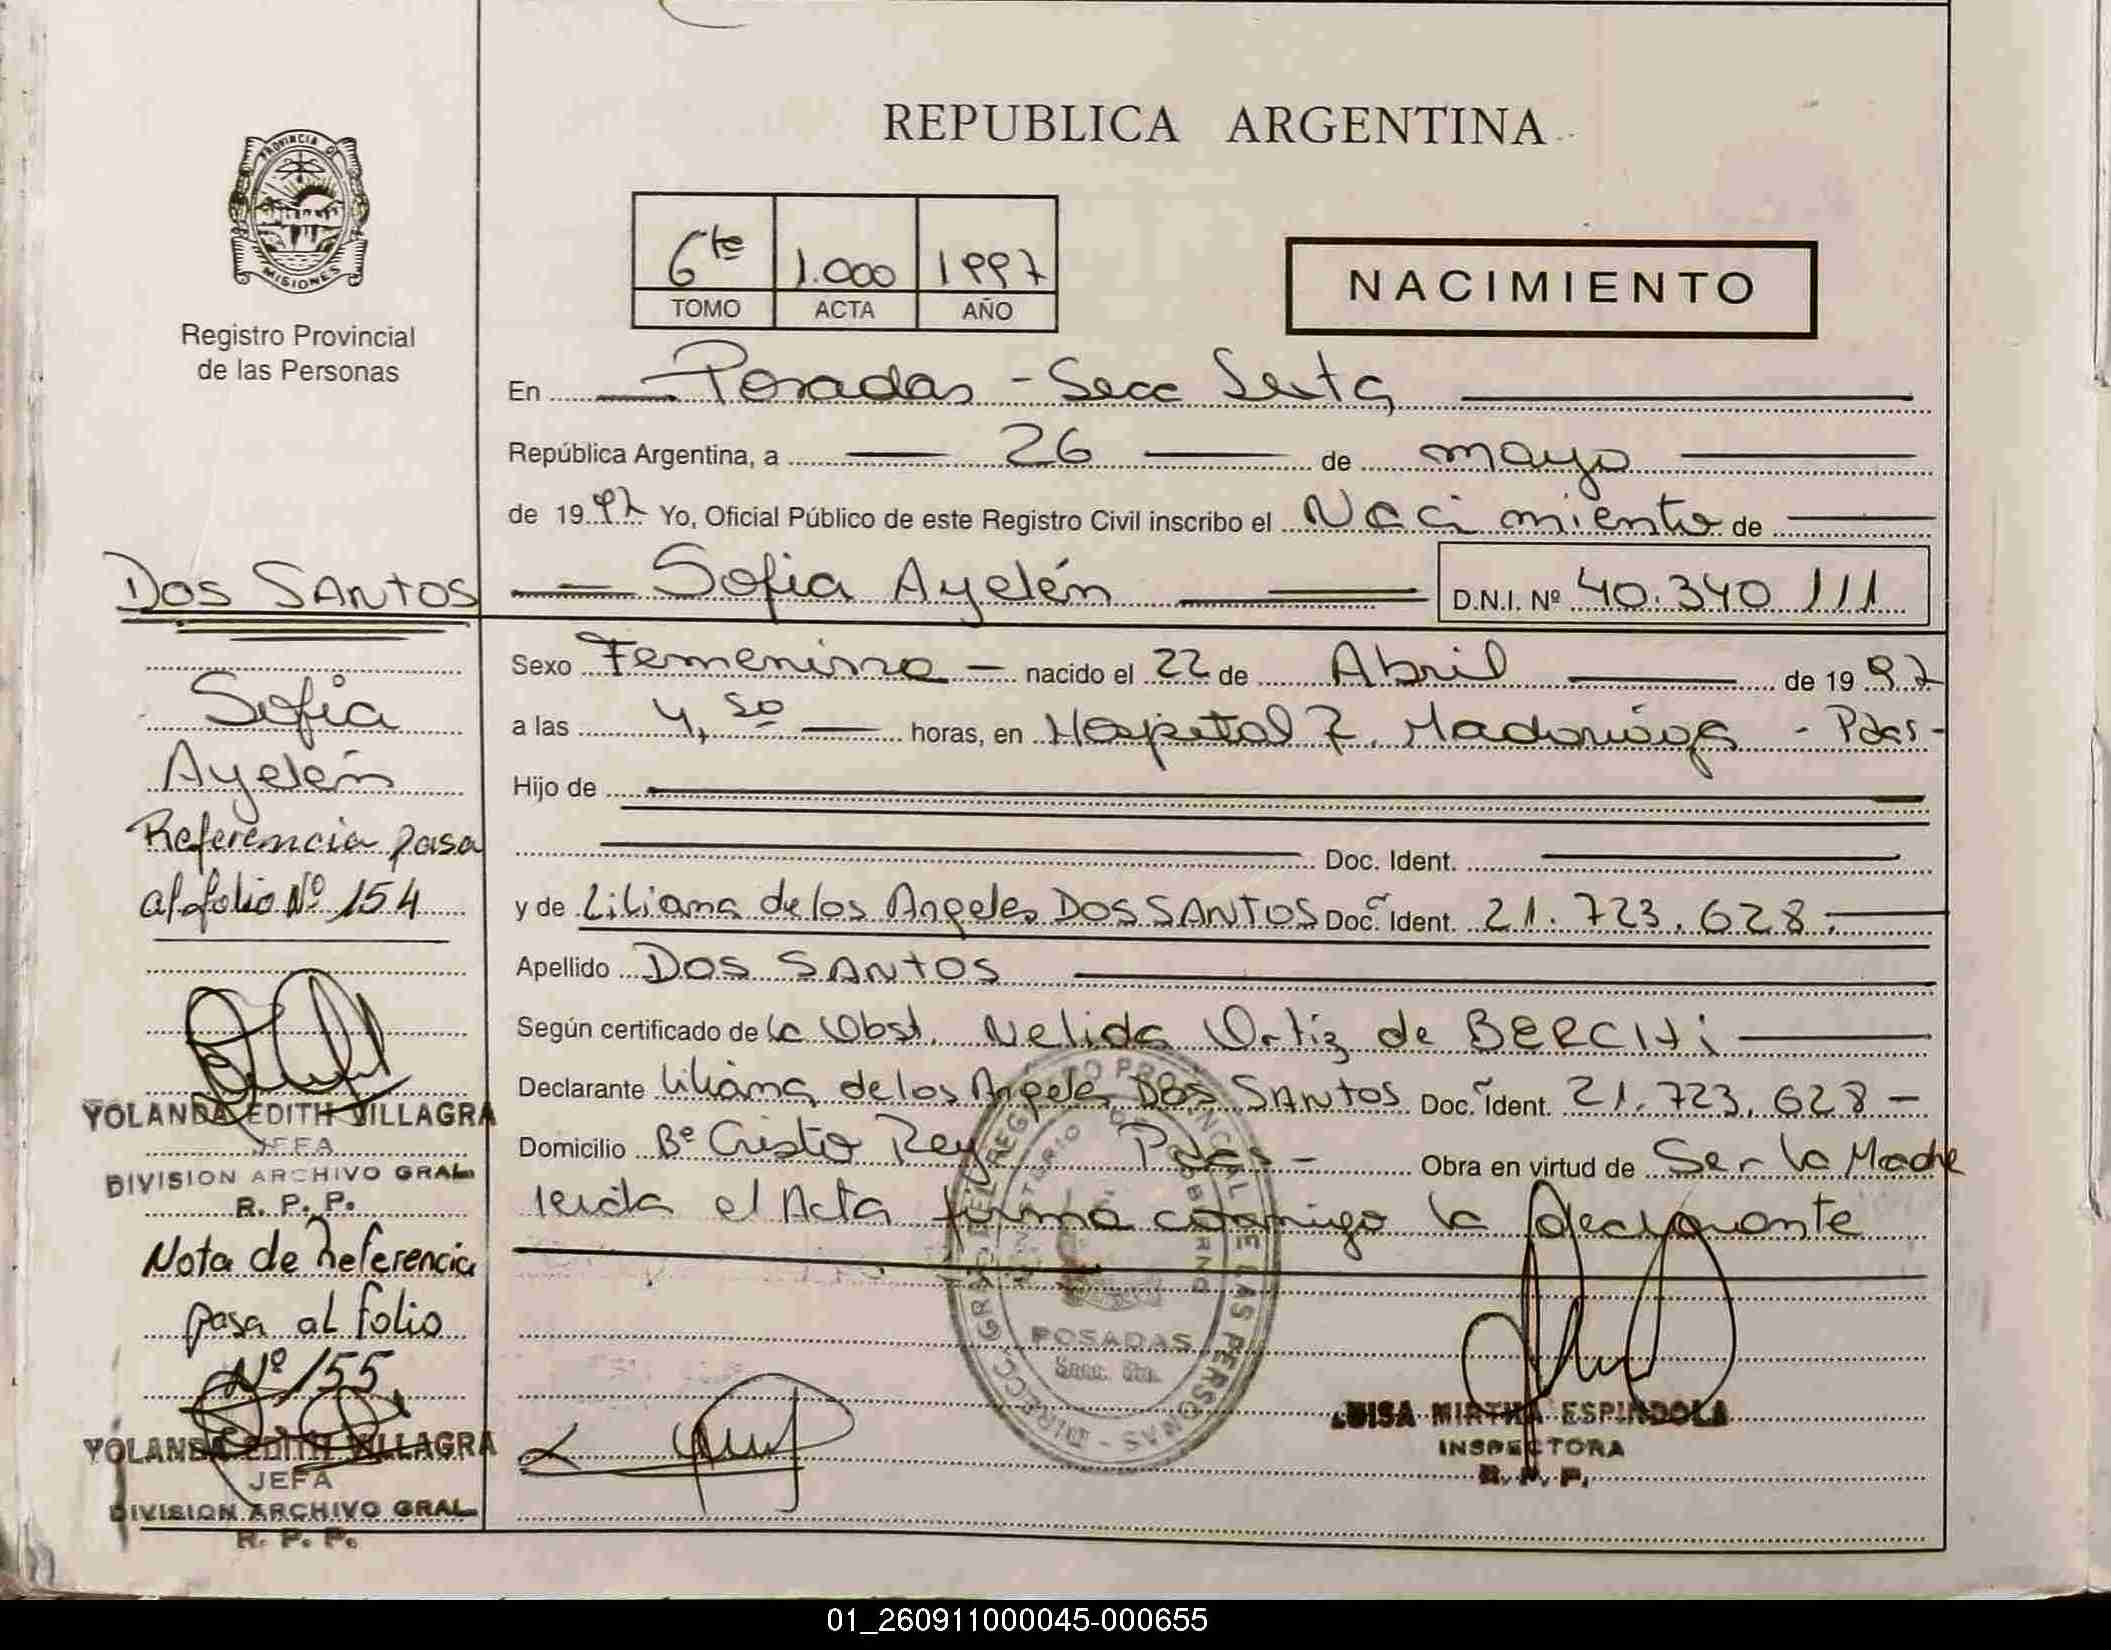 REPUBLICA ARGENTINA
PROVINCIA DE
MISIONES
Registro Provincial
de las Personas
6te 1.000 1997
TOMO ACTA AÑO
NACIMIENTO
En Posadas - Secc Sexta
República Argentina, a 26 de mayo
de 1997 Yo, Oficial Público de este Registro Civil inscribo el Nacimiento de
Sofia Ayelén D.N.I. Nº 40.340 111
Sexo Femenino - nacido el 22 de Abril de 1997
a las 4,50 horas, en Hospital R. Madariaga - Pdas -
Hijo de
Doc. Ident.
y de Liliana de los Angeles DOS SANTOS Doc. Ident. 21.723.628.
Apellido DOS SANTOS
Según certificado de la Obst. Nelida Ortiz de
Declarante Liliana de los Angeles DOS SANTOS Doc. Ident. 21.723.628 -
Domicilio Bº Cristo Rey Pdas - Obra en virtud de Ser la Madre
leida el Acta firma conmigo la declarante
DIRECC. GRAL. DEL REGISTRO PROVINCIAL DE LAS PERSONAS -
MINISTERIO DE GOBIERNO
POSADAS
LUISA MIRTHA ESPINDOLA
INSPECTORA
R. P. P.
DOS SANTOS
Sofia
Ayelén
Referencia pasa
al folio Nº 154
YOLANDA EDITH VILLAGRA
JEFA
DIVISION ARCHIVO GRAL.
R. P. P.
Nota de Referencia
pasa al folio
Nº 155
YOLANDA EDITH VILLAGRA
JEFA
DIVISION ARCHIVO GRAL.
R. P. P.
01_260911000045-000655